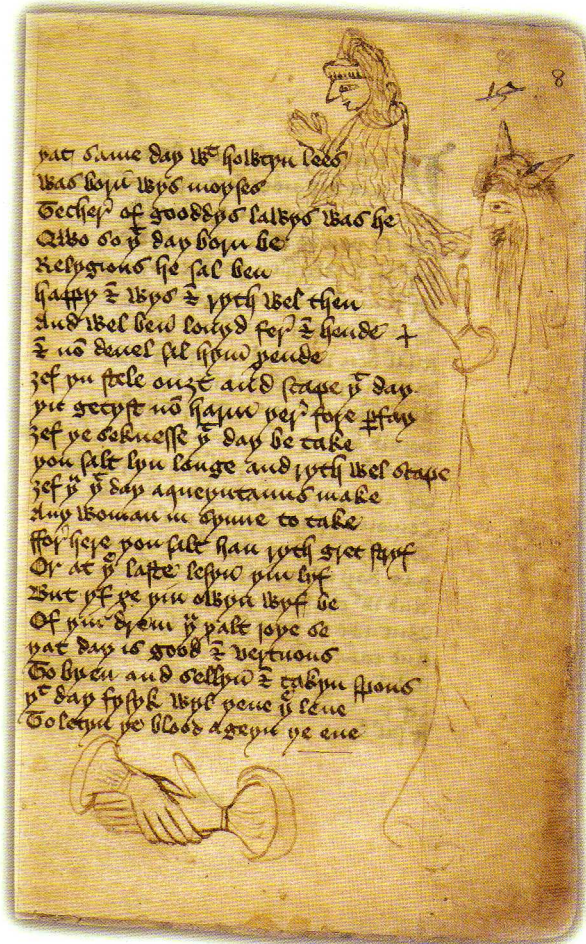 8
15 8
yat same day wt howtyn lees
was born wys moyses
Techer of gooddys lawys was he
Qwo so yt day born be
Relygious he sal ben
happy & wys & ryth wel then
And wel ben louyd fer & hende +
& no deuel sal hym schende
ȝef yu stele ouȝt and scape yt day
yu getyst no harm yer fore pfay
ȝef ye seknesse yt day be take
you salt lyu longe and ryth wel scape
ȝef yu yt day aqueyntauns make
Any woman in synne to take
ffor here you salt han ryth gret stryf
Or at ye laste lesyn yin lyf
But yf ȝe yin owyn wyf be
Of yin drem yu xalt joye se
yat day is good & vertuous
To byen and sellyn & takyn spous
yt day fysyk wyl yeue ye leue
To letyn ye blood ageyn ye eue